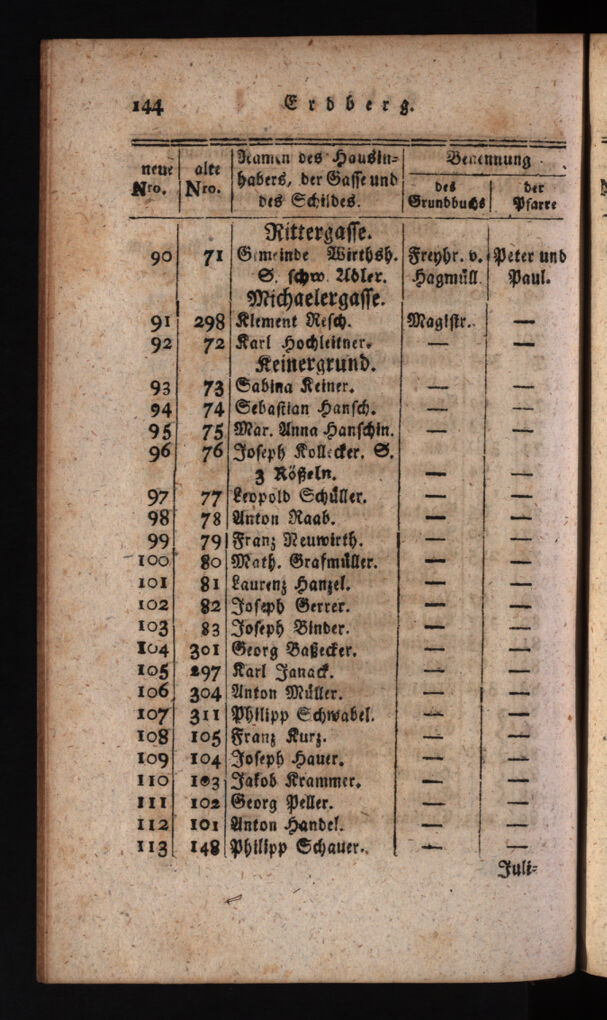 144 Erdberg.
neue Nro. | alte Nro. | Namen des Hausin- | Benennung
habers, der Gasse und | des | der
des Schildes. | Grundbuchs | Pfarre
Rittergasse.
90 71 Gemeinde Wirthsh. Freyhr. v. Peter und
S. schw. Adler. Hagmüll. Paul.
Michaelergasse.
91 298 Klement Resch. Magistr. —
92 72 Karl Hochleitner. — —
Keinergrund.
93 73 Sabina Keiner. — —
94 74 Sebastian Hansch. — —
95 75 Mar. Anna Hanschin. — —
96 76 Joseph Kollecker. S.
3 Rößeln. — —
97 77 Leopold Schüller. — —
98 78 Anton Raab. — —
99 79 Franz Neuwirth. — —
100 80 Math. Grafmüller. — —
101 81 Laurenz Hanzel. — —
102 82 Joseph Gerrer. — —
103 83 Joseph Binder. — —
104 301 Georg Baßecker. — —
105 297 Karl Janack. — —
106 304 Anton Müller. — —
107 311 Philipp Schwabel. — —
108 105 Franz Kurz. — —
109 104 Joseph Hauer. — —
110 103 Jakob Krammer. — —
111 102 Georg Peller. — —
112 101 Anton Handel. — —
113 148 Philipp Schauer. — —
Juli-